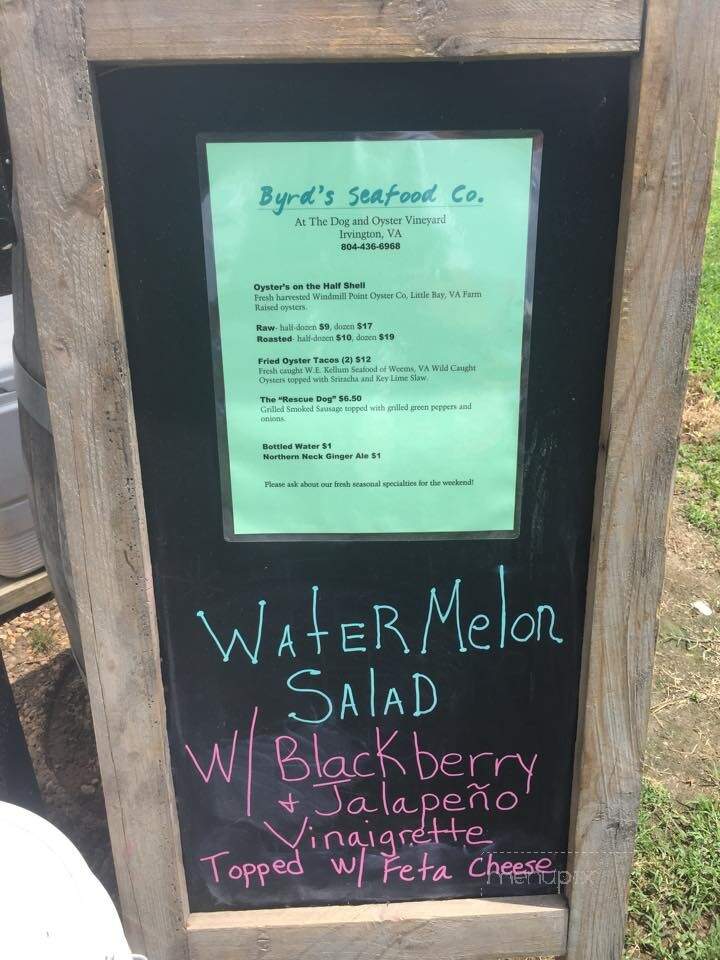 Byrd's Seafood Co.
At The Dog and Oyster Vineyard
Irvington, VA
804-436-6968
Oyster's on the Half Shell
Fresh harvested Windmill Point Oyster Co, Little Bay, VA Farm
Raised oysters.
Raw- half-dozen $9, dozen $17
Roasted- half-dozen $10, dozen $19
Fried Oyster Tacos (2) $12
Fresh caught W.E. Kellum Seafood of Weems, VA Wild Caught
Oysters topped with Sriracha and Key Lime Slaw.
The "Rescue Dog" $6.50
Grilled Smoked Sausage topped with grilled green peppers and
onions.
Bottled Water $1
Northern Neck Ginger Ale $1
Please ask about our fresh seasonal specialties for the weekend!
WAtER Melon
SALAD
W/ Blackberry
+ Jalapeño
Vinaigrette
Topped w/ Feta Cheese
menupix